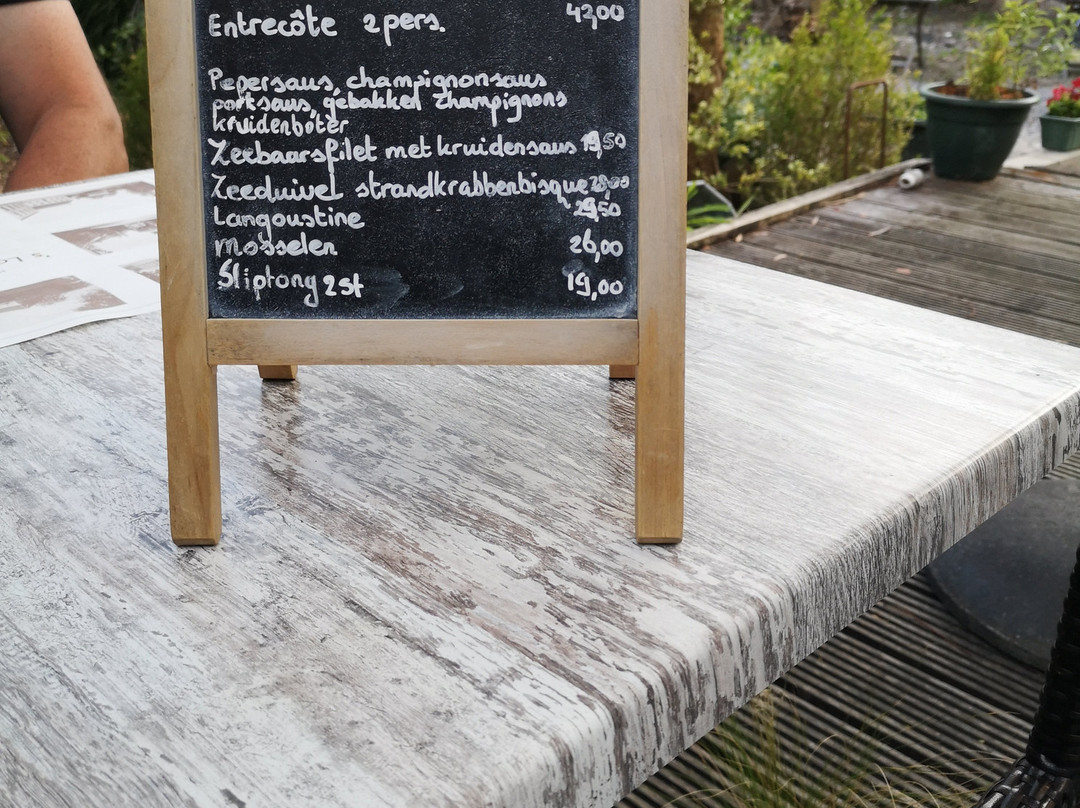 Entrecôte 2 pers. 42,00
Pepersaus, champignonsaus
portsaus, gebakken champignons
kruidenboter
Zeebaarsfilet met kruidensaus 19,50
Zeeduivel strandkrabbenbisque
Langoustine 29,50
Mosselen 26,00
Sliptong 2 st 19,00